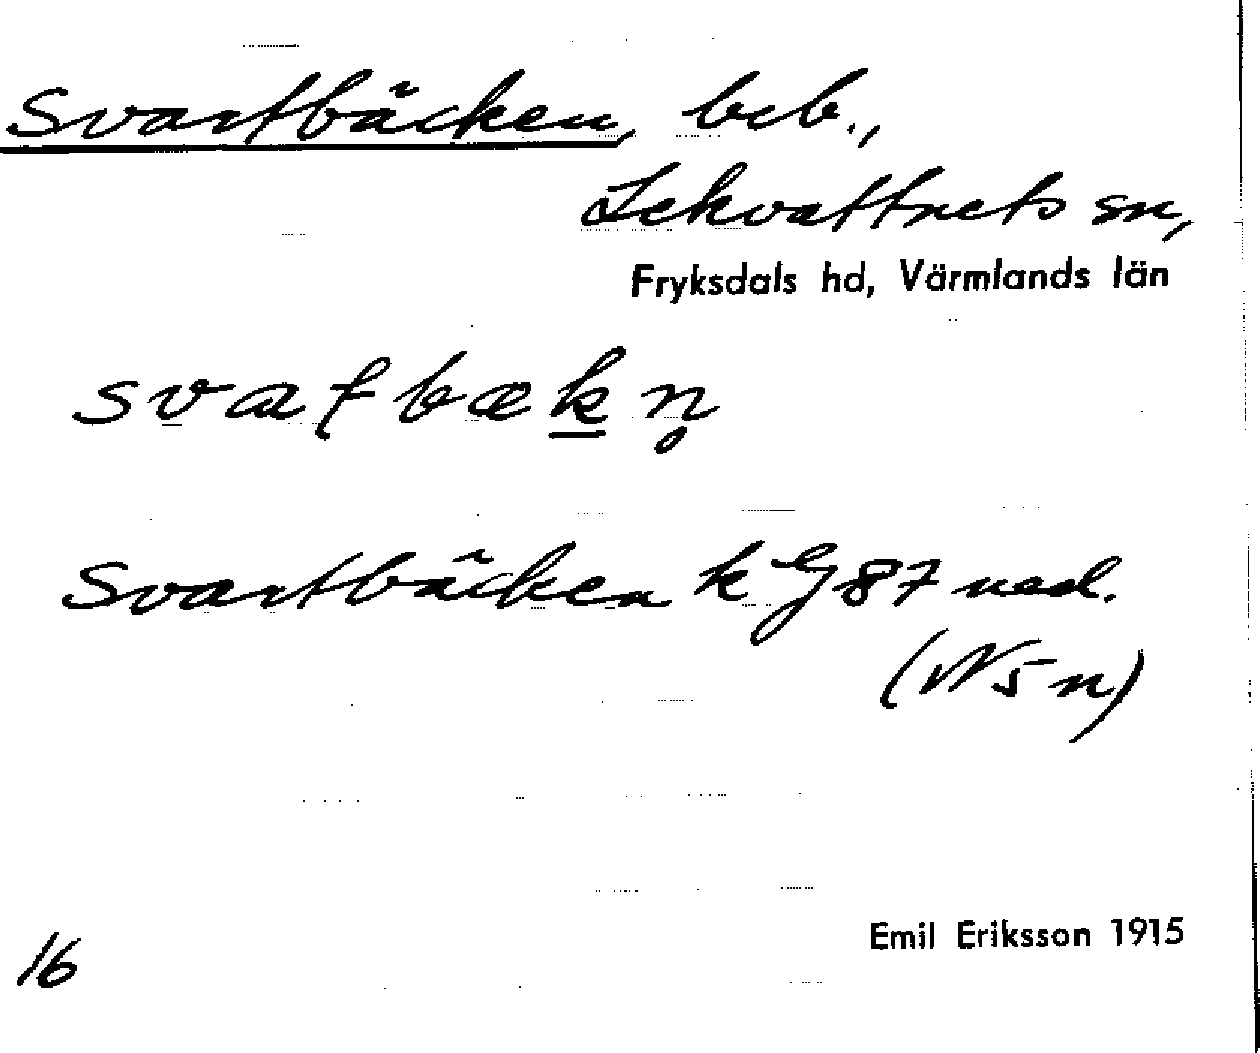 Svartbäcken, beb.,
Lekvattnets sn,
Fryksdals hd, Värmlands län
svaʈbækn̥
Svartbäcken k G 87 ned.
(N5n)
16 Emil Eriksson 1915